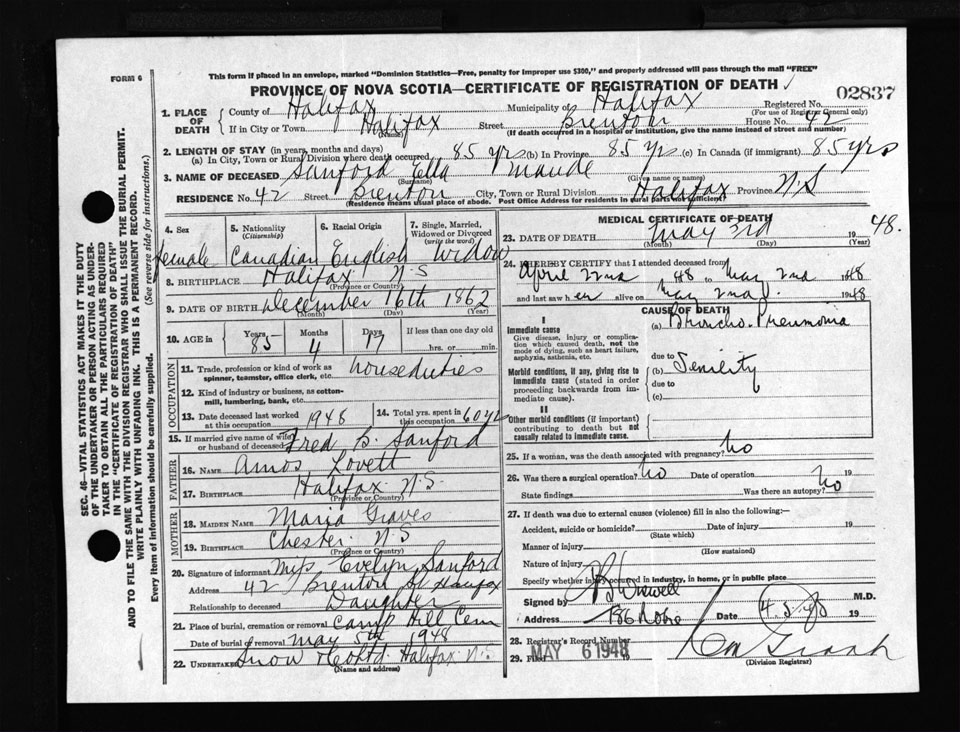 This form if placed in an envelope, marked "Dominion Statistics—Free, penalty for improper use $300," and properly addressed will pass through the mail "FREE"
FORM 6
PROVINCE OF NOVA SCOTIA—CERTIFICATE OF REGISTRATION OF DEATH
02837
1. PLACE OF DEATH
County of Halifax Municipality of Halifax Registered No.
(For use of Registrar General only)
If in City or Town Halifax Street Brenton House No. 42
(Name) (If death occurred in a hospital or institution, give the name instead of street and number)
2. LENGTH OF STAY (in years, months and days)
(a) In City, Town or Rural Division where death occurred 85 yrs (b) In Province 85 yrs (c) In Canada (if immigrant) 85 yrs
3. NAME OF DECEASED Sanford Ella Maude
(Surname) (Given name or names)
RESIDENCE No. 42 Street Brenton City, Town or Rural Division Halifax Province N.S
(Residence means usual place of abode. Post Office Address for residents in rural parts not sufficient)
4. Sex
5. Nationality (Citizenship)
6. Racial Origin
7. Single, Married, Widowed or Divorced (write the word)
female Canadian English Widow
8. BIRTHPLACE Halifax N.S
(Province or Country)
9. DATE OF BIRTH December 16th 1862
(Month) (Day) (Year)
10. AGE in Years 85 Months 4 Days 17 If less than one day old hrs. or min.
OCCUPATION
11. Trade, profession or kind of work as spinner, teamster, office clerk, etc. house duties
12. Kind of industry or business, as cotton-mill, lumbering, bank, etc.
13. Date deceased last worked at this occupation 1948
14. Total yrs. spent in this occupation 60 yrs
15. If married give name of wife or husband of deceased Fred B. Sanford
FATHER
16. NAME Amos Lovett
17. BIRTHPLACE Halifax N.S.
(Province or Country)
MOTHER
18. MAIDEN NAME Maria Graves
19. BIRTHPLACE Chester N.S
(Province or Country)
20. Signature of informant Miss Evelyn Sanford
Address 42 Brenton St Halifax
Relationship to deceased Daughter
21. Place of burial, cremation or removal Camp Hill Cem
Date of burial or removal May 5th 1948
22. UNDERTAKER Snow & Co Ltd. Halifax N.S.
(Name and address)
MEDICAL CERTIFICATE OF DEATH
23. DATE OF DEATH May 3rd 1948.
(Month) (Day) (Year)
24. I HEREBY CERTIFY that I attended deceased from
April 22nd 1948 to May 2nd 1948
and last saw her alive on May 2nd 1948
CAUSE OF DEATH
I
Immediate cause
Give disease, injury or complication which caused death, not the mode of dying, such as heart failure, asphyxia, asthenia, etc.
(a) Broncho-Pneumonia
due to
Morbid conditions, if any, giving rise to immediate cause (stated in order proceeding backwards from immediate cause).
(b) Senility
due to
(c)
II
Other morbid conditions (if important) contributing to death but not causally related to immediate cause.
25. If a woman, was the death associated with pregnancy? No
26. Was there a surgical operation? No Date of operation 19
State findings Was there an autopsy? No
27. If death was due to external causes (violence) fill in also the following:—
Accident, suicide or homicide? Date of injury 19
(State which)
Manner of injury
(How sustained)
Nature of injury
Specify whether injury occurred in industry, in home, or in public place
Signed by M.D.
Address 186 Robie Date 4.5.48 19
28. Registrar's Record Number
29. Filed MAY 6 1948
(Division Registrar)
SEC. 46—VITAL STATISTICS ACT MAKES IT THE DUTY OF THE UNDERTAKER OR PERSON ACTING AS UNDERTAKER TO OBTAIN ALL THE PARTICULARS REQUIRED IN THE "CERTIFICATE OF REGISTRATION OF DEATH" AND TO FILE THE SAME WITH THE DIVISION REGISTRAR WHO SHALL ISSUE THE BURIAL PERMIT.
WRITE PLAINLY WITH UNFADING INK. THIS IS A PERMANENT RECORD.
Every item of information should be carefully supplied. (See reverse side for instructions.)